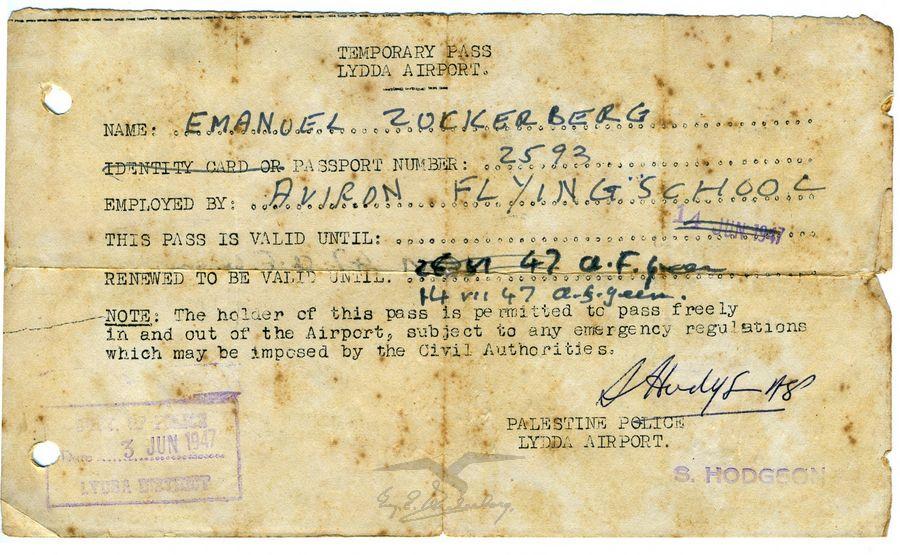 TEMPORARY PASS
LYDDA AIRPORT.
NAME: EMANUEL ZUCKERBERG
IDENTITY CARD OR PASSPORT NUMBER: 2593
EMPLOYED BY: AVIRON FLYING SCHOOL
THIS PASS IS VALID UNTIL: 14 JUN 1947
RENEWED TO BE VALID UNTIL. 47 A.F. Green
14 VII 47 A.F. Green.
NOTE: The holder of this pass is permitted to pass freely
in and out of the Airport, subject to any emergency regulations
which may be imposed by the Civil Authorities.
S Hodgson
PALESTINE POLICE
LYDDA AIRPORT.
S. HODGSON
OF POLICE
Date 3 JUN 1947
LYDDA DISTRICT